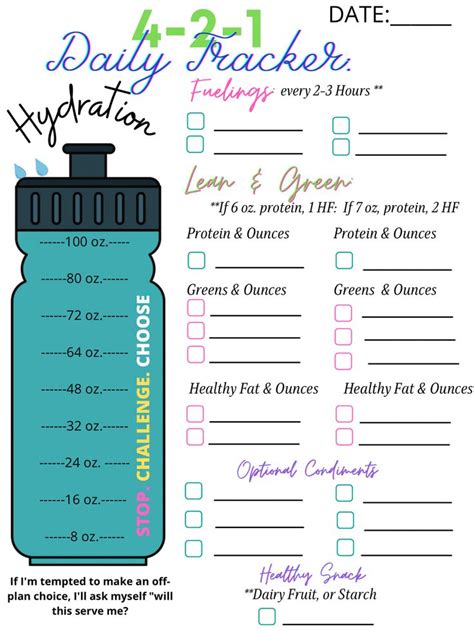 4-2-1
DATE:______
Daily Tracker:
Fuelings: every 2-3 Hours **
Hydration
Lean & Green:
**If 6 oz. protein, 1 HF: If 7 oz, protein, 2 HF
Protein & Ounces
Protein & Ounces
Greens & Ounces
Greens & Ounces
Healthy Fat & Ounces
Healthy Fat & Ounces
Optional Condiments
Healthy Snack
**Dairy Fruit, or Starch
------100 oz.------
------80 oz.------
------72 oz.------
------64 oz.------
------48 oz.------
------32 oz.------
------24 oz.------
------16 oz.------
------8 oz.------
STOP. CHALLENGE. CHOOSE
If I'm tempted to make an off-
plan choice, I'll ask myself "will
this serve me?